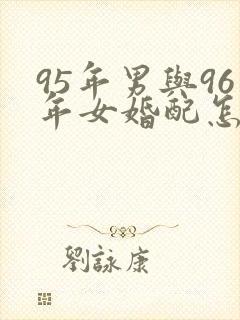 95年男與96
年女婚配怎
劉詠康